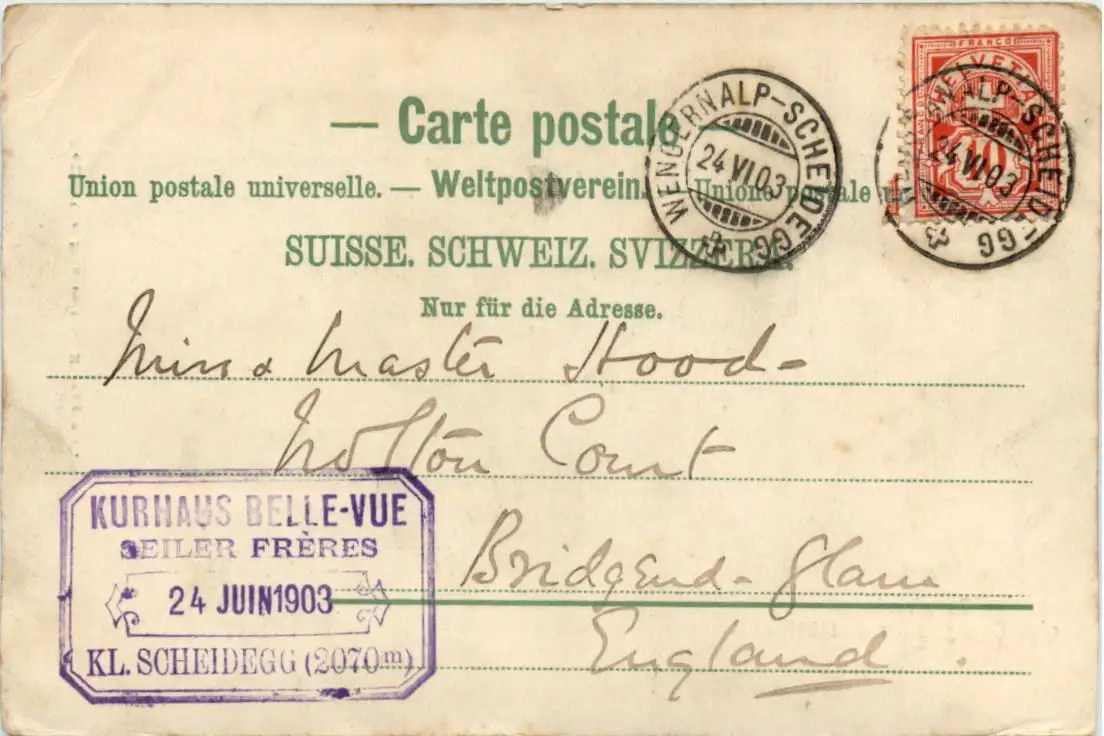 — Carte postale —
Union postale universelle. — Weltpostverein. — Unione postale
SUISSE. SCHWEIZ. SVIZZERA.
Nur für die Adresse.
FRANCO
HELVETIA
10
WENGERNALP-SCHEIDEGG
24 VI 03
WENGERNALP-SCHEIDEGG
24 VI 03
Miss & Master Hood-
Nolton Court
Bridgend - Glam
England.
KURHAUS BELLE-VUE
SEILER FRÈRES
24 JUIN 1903
KL. SCHEIDEGG (2070m)